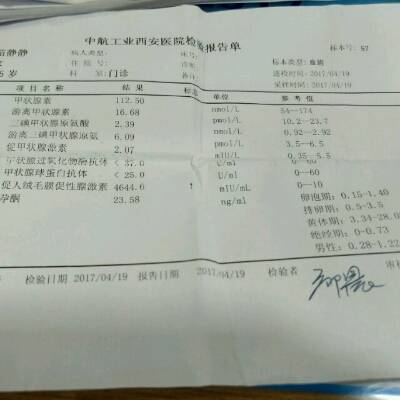 中航工业西安医院检验报告单
静静 病人类型: 床号: 标本号: 57
标本类型: 血清
5岁 科 室: 门诊 备注: 送检时间: 2017/04/19
采样时间: 2017/04/19
项目名称 结果 单位 参考值
甲状腺素 112.50 nmol/L 54—174
游离甲状腺素 16.68 pmol/L 10.2—23.7
三碘甲状腺原氨酸 2.39 nmol/L 0.92—2.92
游离三碘甲状腺原氨 6.09 pmol/L 3.5—6.5
促甲状腺激素 2.07 mIU/L 0.35—5.5
甲状腺过氧化物酶抗体 U/mL 0—60
甲状腺球蛋白抗体 < 25.0 U/mL 0—60
促人绒毛膜促性腺激素 4644.6 mIU/mL 0—10
孕酮 23.58 ng/ml 卵泡期: 0.15-1.40
排卵期: 0.5-3.5
黄体期: 3.34-28.0
绝经期: 0-0.73
男性: 0.28-1.22
检验日期 2017/04/19 报告日期 2017/04/19 检验者